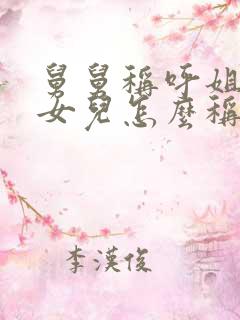 舅舅稱呼姐
女兒怎麼稱
李漢俊